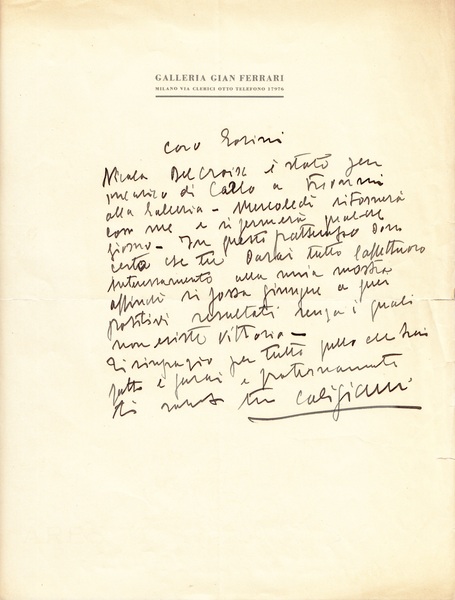 GALLERIA GIAN FERRARI
MILANO VIA CLERICI OTTO TELEFONO 17976
caro
Nicola Delcroix è stato per
di Carlo a
alla Galleria – Mercoledì ritornerà
con me e si fermerà qualche
giorno – In questo frattempo sono
certo che tu darai tutto l'affettuoso
interessamento alla mia mostra
affinché si possa giungere a quei
positivi risultati senza i quali
non esiste vittoria –
Ti ringrazio per tutto quello che hai
fatto e farai e fraternamente
ti saluto tuo Caligiani